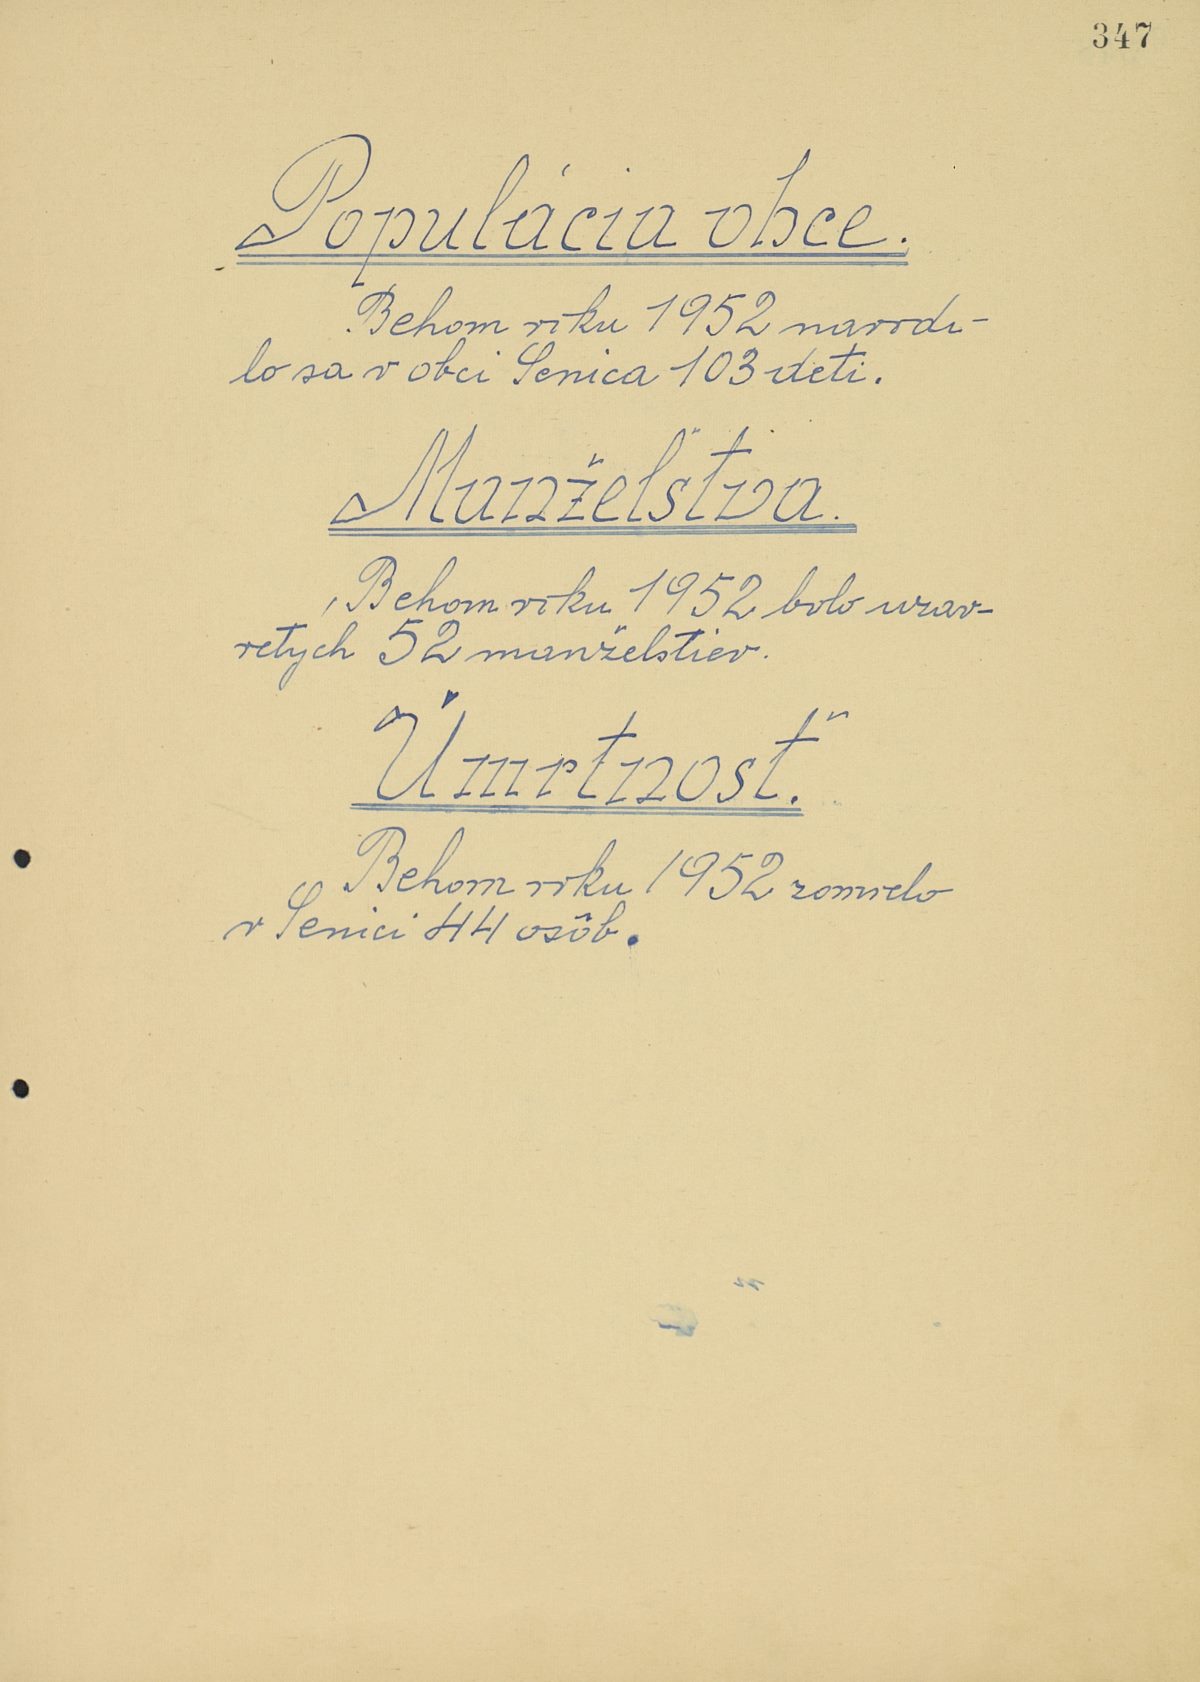 347
Populácia obce.
Behom roku 1952 narodi-
lo sa v obci Senica 103 detí.
Manželstva.
Behom roku 1952 bolo uzav-
retych 52 manželstiev.
Úmrtnosť.
Behom roku 1952 zomrelo
v Senici 44 osôb.